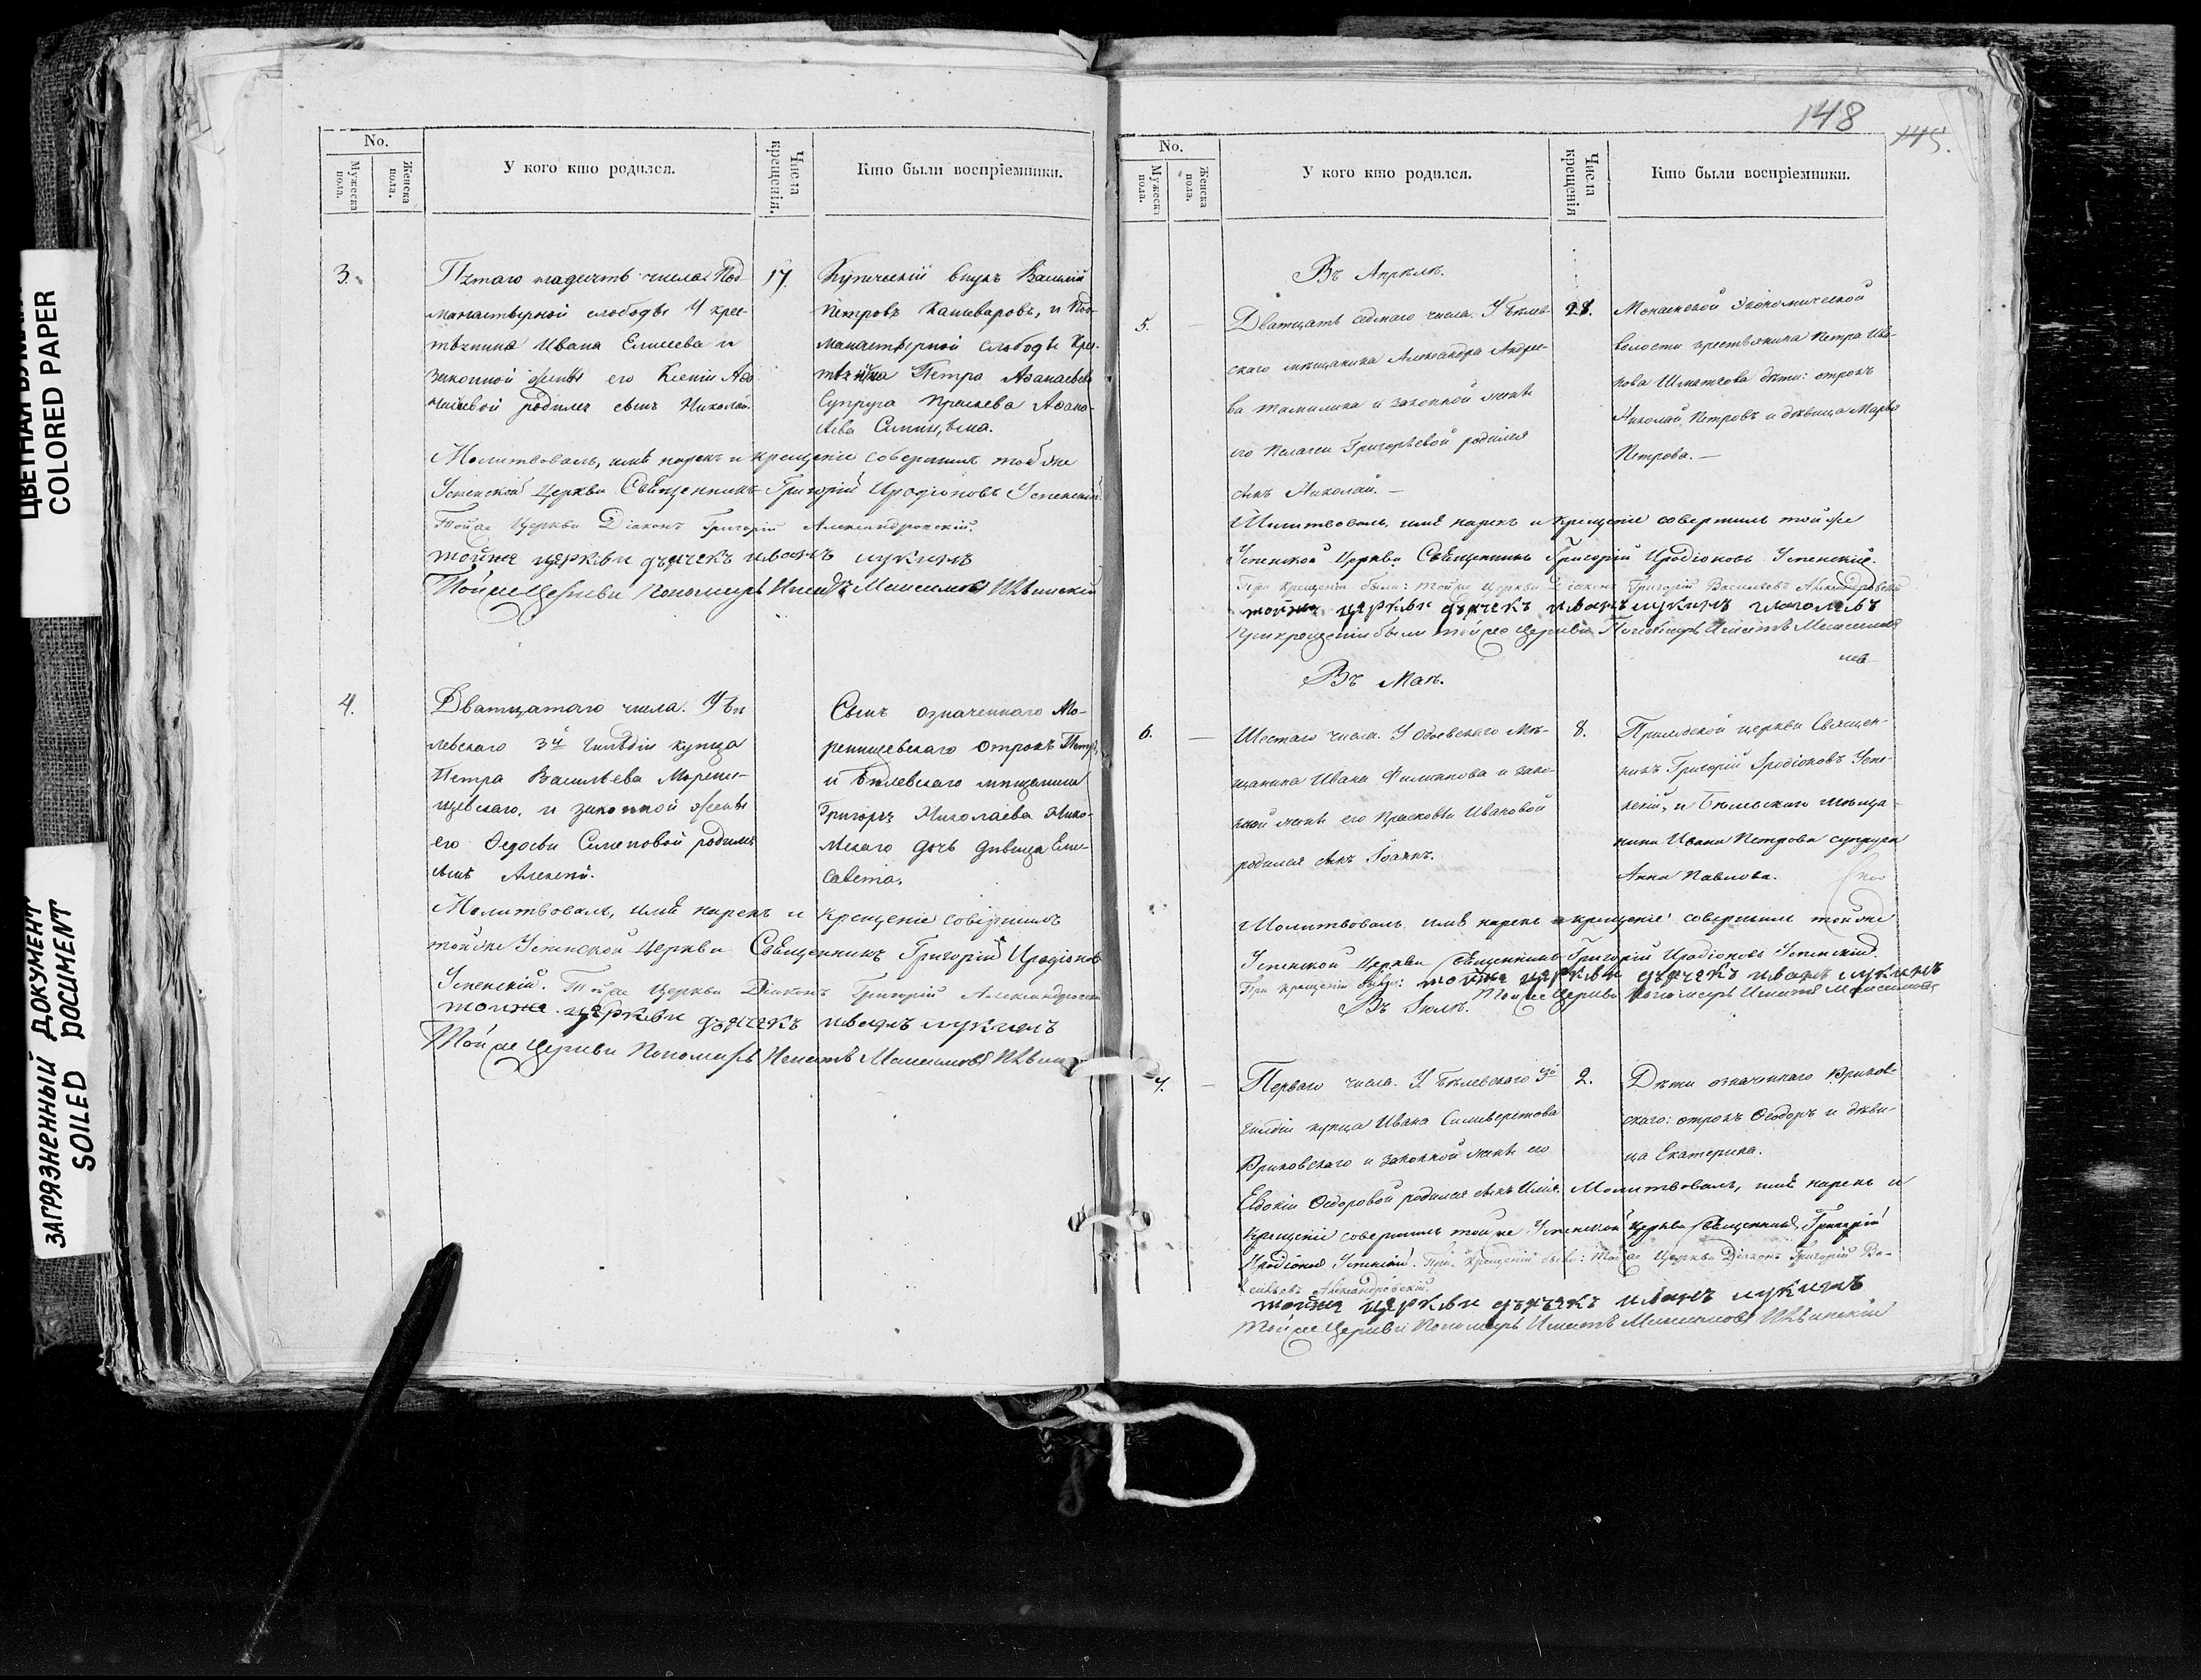 ЦВЕТНАЯ БУМАГА
COLORED PAPER
ЗАГРЯЗНЕННЫЙ ДОКУМЕНТ
SOILED DOCUMENT
No.
Мужеска пола.
Женска пола.
У кого кто родился.
Числа крещенія.
Кто были воспріемники.
3.
Пятаго надесять числа Под-
манастырной слободы У крес-
тьянина Ивана Елисеева и
законной жены его Ксеніи Афа-
родился сынъ Николай.
17.
Купеческій внукъ Василій
Петровъ Кашеваровъ, и Под-
манастырной слободы Крес-
Петра Афанасьева
Супруга Праскева Афана-
сьева
Молитвовалъ, имѣ нарекъ и крещеніе совершилъ той же
Успенской Церкви Священникъ Григорій Иродіоновъ Успенскій.
Тойже Церкви Діаконъ Григорій Александровскій.
тойже церкви дьячекъ иванъ лукинъ
Тойже Церкви Пономарь Игнатъ Максимовъ
4.
Дватцатого числа. У Бѣ-
левскаго 3й Гильдіи купца
Петра Васильева Морени-
щевскаго, и законной жены
его Федосьи Симеповой родился
сынъ Алексей.
Сынъ означеннаго Мо-
ренищевскаго отрокъ Петръ,
и Бѣлевскаго мещанина
Григорья Николаева Нико-
дочь девица Ели-
савета.
Молитвовалъ, имѣ нарекъ и крещеніе совершилъ
тойже Успенской Церкви Священникъ Григорій Иродіоновъ
Успенскій. Тойже Церкви Діаконъ Григорій Александровскій
тойже церкви дьячекъ иванъ лукинъ
Тойже Церкви Пономарь Игнатъ Максимовъ
148
145.
No.
Мужеска пола.
Женска пола.
У кого кто родился.
Числа крещенія
Кто были воспріемники.
Въ Апрѣлѣ.
5.
Дватцать седмаго числа. У Бѣлев-
скаго мѣщанина Александра Андрее-
ва и законной жены
его Пелагеи Григорьевой родился
сынъ Николай.
28.
экономической
волости крестьянина Петра Ива-
нова дѣти: отрокъ
Николай Петровъ и дѣвица Марья
Петрова.
Молитвовалъ, имѣ нарекъ и крещеніе совершилъ той же
Успенской Церкви Священникъ Григорій Иродіоновъ Успенскій.
При крещеніи были: тойже Церкви Діаконъ Григорій Васильевъ Александровскій
тойже церкви дьячекъ иванъ лукинъ
При крещеніи были тойже Церкви Пономарь Игнатъ Максимовъ
Въ Маѣ.
6.
Шестаго числа. У Одоевскаго Мѣ-
щанина Ивана Филипова и зако-
нной жены его Прасковьи Ивановой
родился сынъ Іоаннъ.
8.
церкви Священ-
никъ Григорій Иродіоновъ Успе-
нскій, и мѣща-
нина Ивана Петрова супруга
Анна Павлова.
Молитвовалъ имѣ нарекъ и крещеніе совершилъ тойже
Успенской Церкви Священникъ Григорій Иродіоновъ Успенскій.
При крещеніи были: тойже церкви дьячекъ иванъ лукинъ
Тойже Церкви Пономарь Игнатъ Максимовъ
Въ Іюлѣ.
7.
Перваго числа. У Бѣлевскаго 3й
гильдіи купца Ивана Сильверстова
и законной жены его
Евдокіи Федоровой родился сынъ Илія.
2.
Дѣти означеннаго
скаго: отрокъ Феодоръ и дѣви-
ца Екатерина.
Молитвовалъ, имѣ нарекъ и
крещеніе совершилъ тойже Успенской Церкви Священникъ Григорій
Иродіоновъ Успенскій. При крещеніи были: тойже Церкви Діаконъ Григорій Ва-
сильевъ Александровскій.
тойже церкви дьячекъ иванъ лукинъ
Тойже Церкви Пономарь Игнатъ Максимовъ